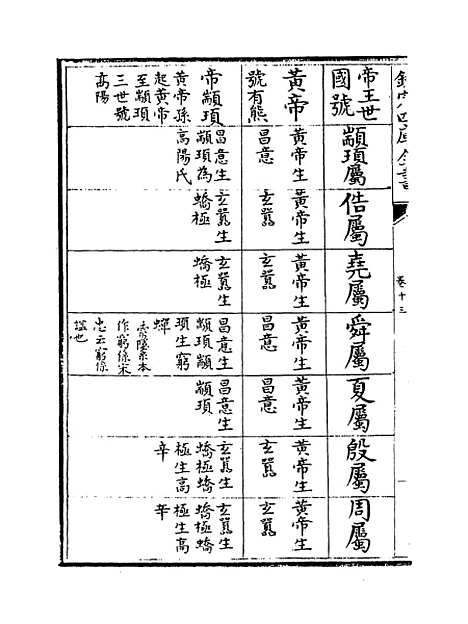 欽定四庫全書
卷十三
帝王世
國號
顓頊屬
俈屬
堯屬
舜屬
夏屬
殷屬
周屬
黃帝
號有熊
黃帝生
昌意
黃帝生
玄囂
黃帝生
玄囂
黃帝生
昌意
黃帝生
昌意
黃帝生
玄囂
黃帝生
玄囂
帝顓頊
黃帝孫
起黃帝
至顓頊
三世號
高陽
昌意生
顓頊為
高陽氏
玄囂生
蟜極
玄囂生
蟜極
昌意生
顓頊顓
頊生窮
蟬
索隱系本
作窮係宋
忠云窮係
謚也
昌意生
顓頊
玄囂生
蟜極蟜
極生高
辛
玄囂生
蟜極蟜
極生高
辛